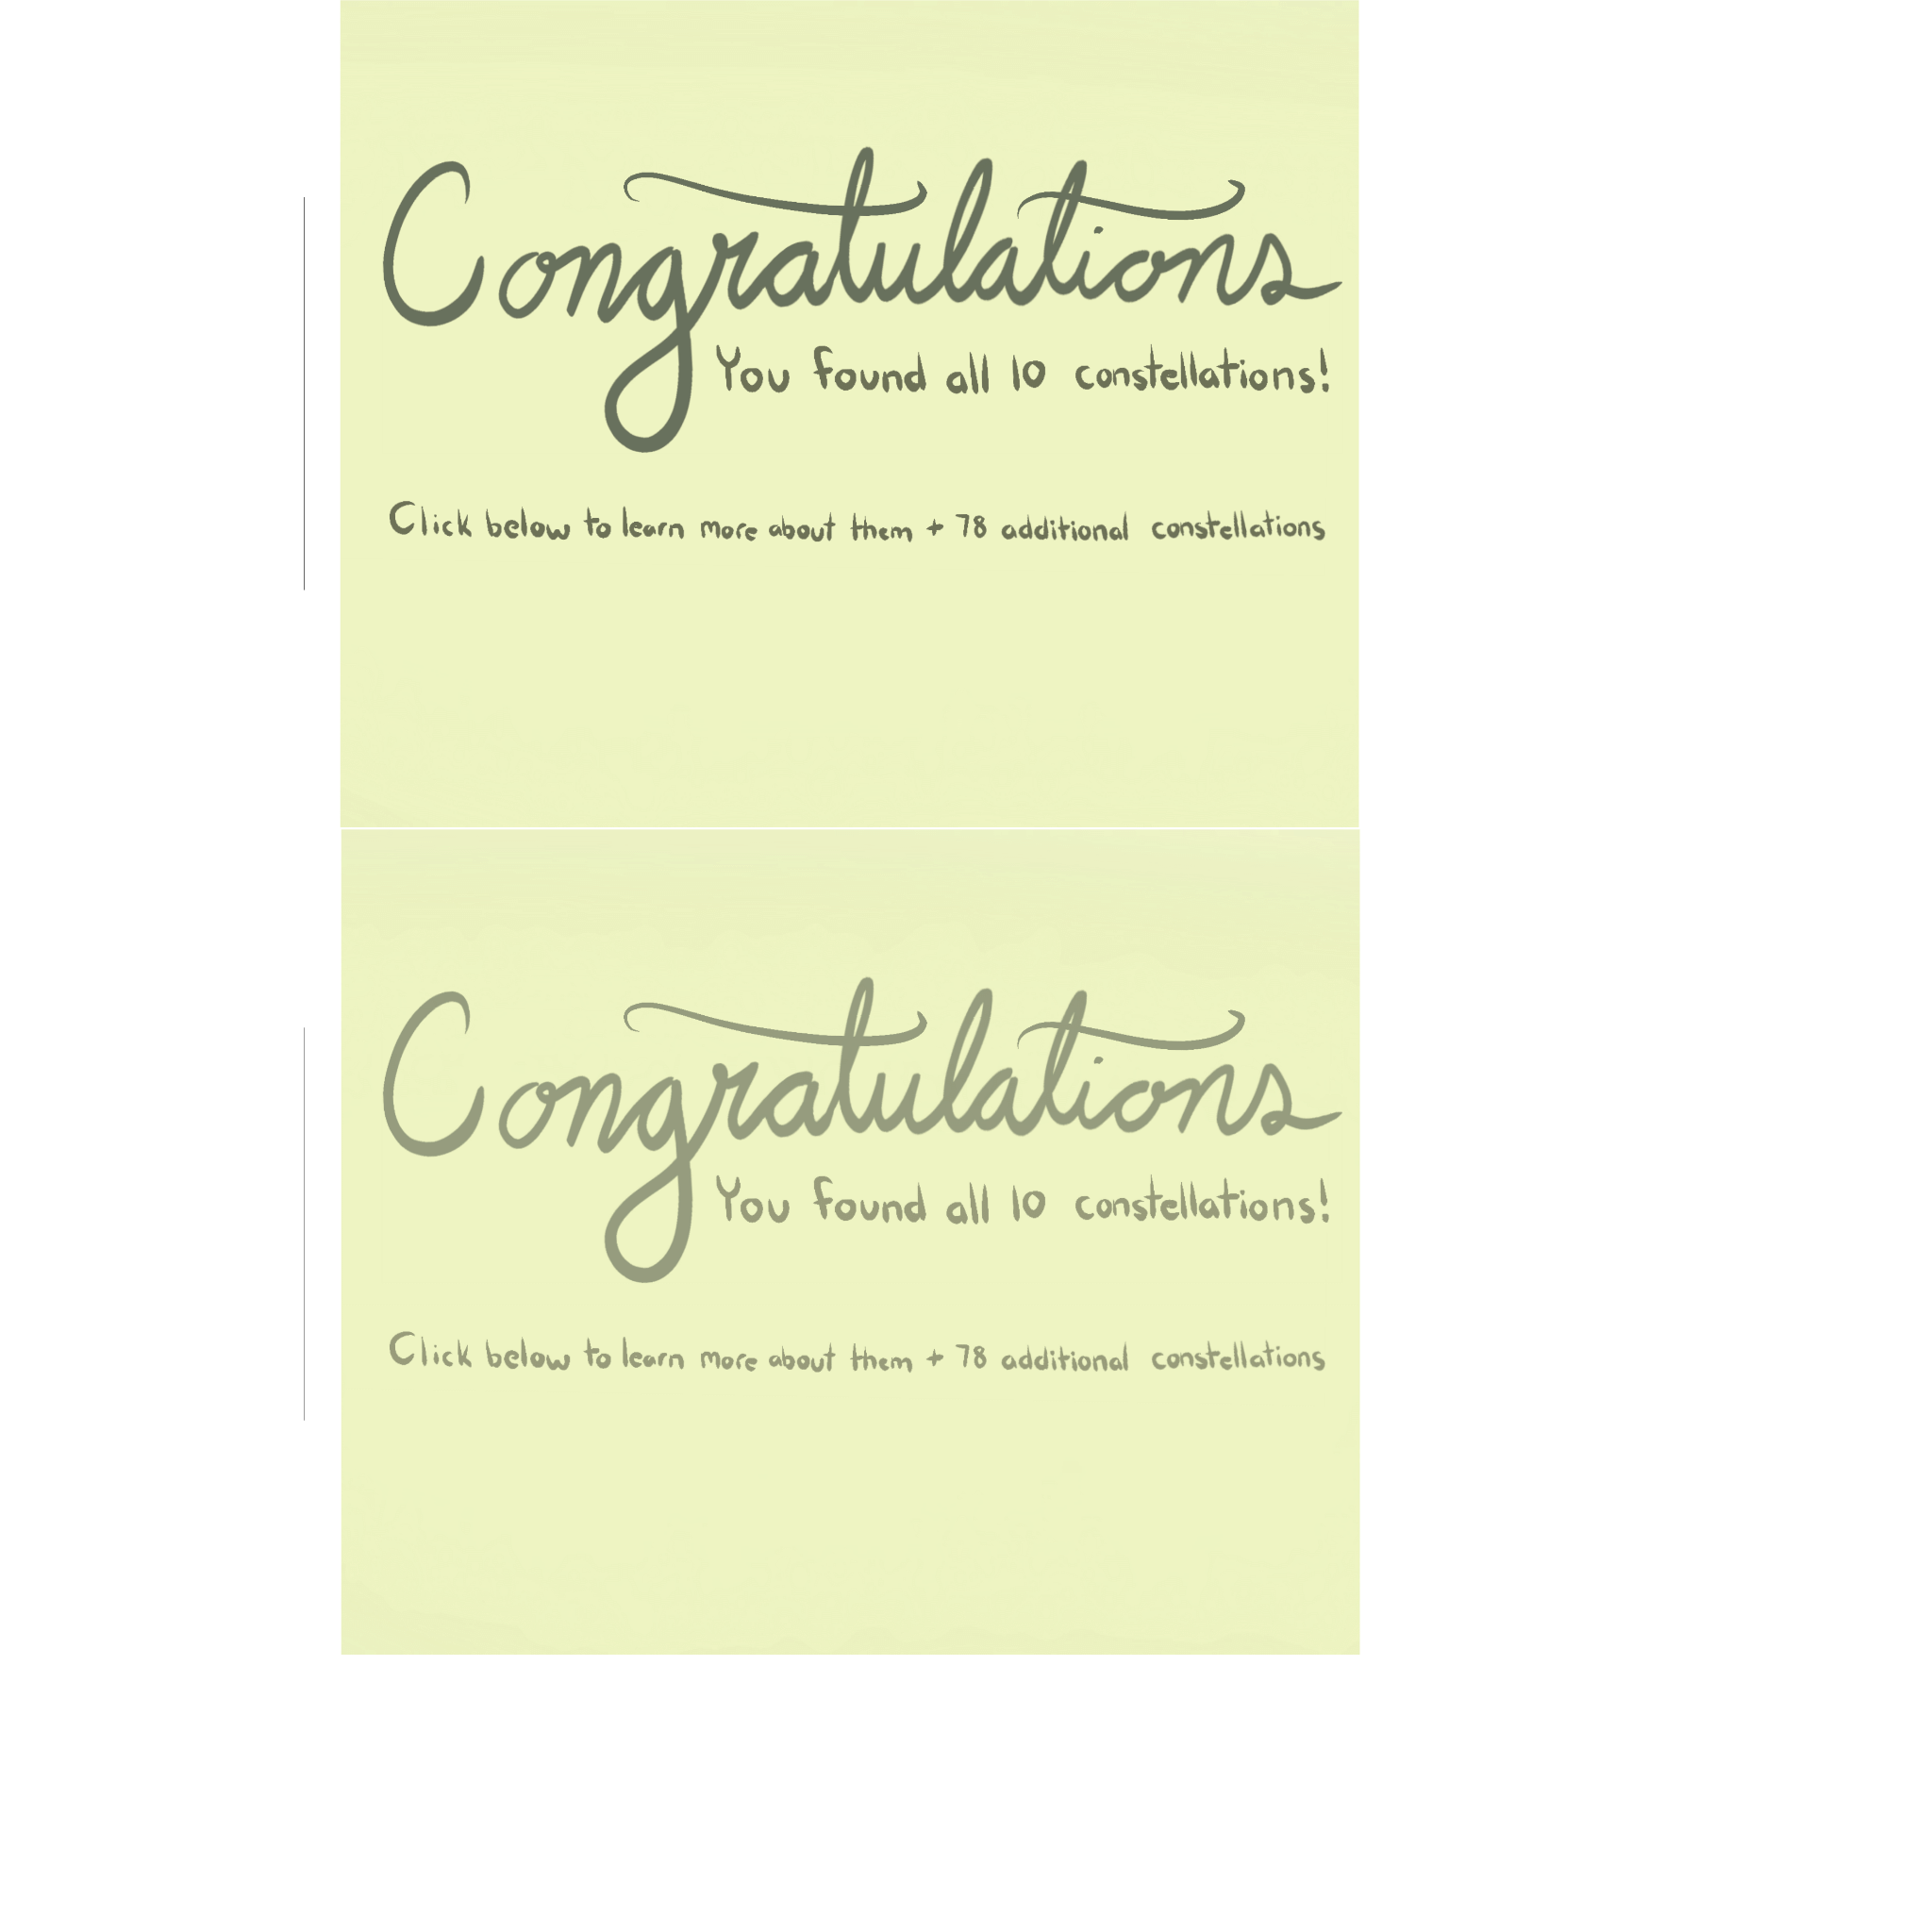 Congratulations
You found all 10 constellations!
Click below to learn more about them + 78 additional constellations
Congratulations
You found all 10 constellations!
Click below to learn more about them + 78 additional constellations